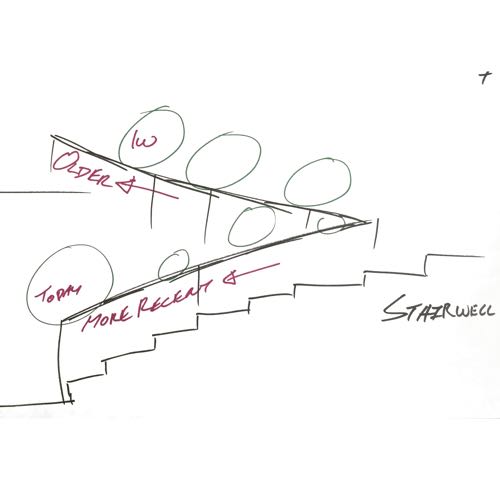 1W
OLDER
TODAY
MORE RECENT
STAIRWELL